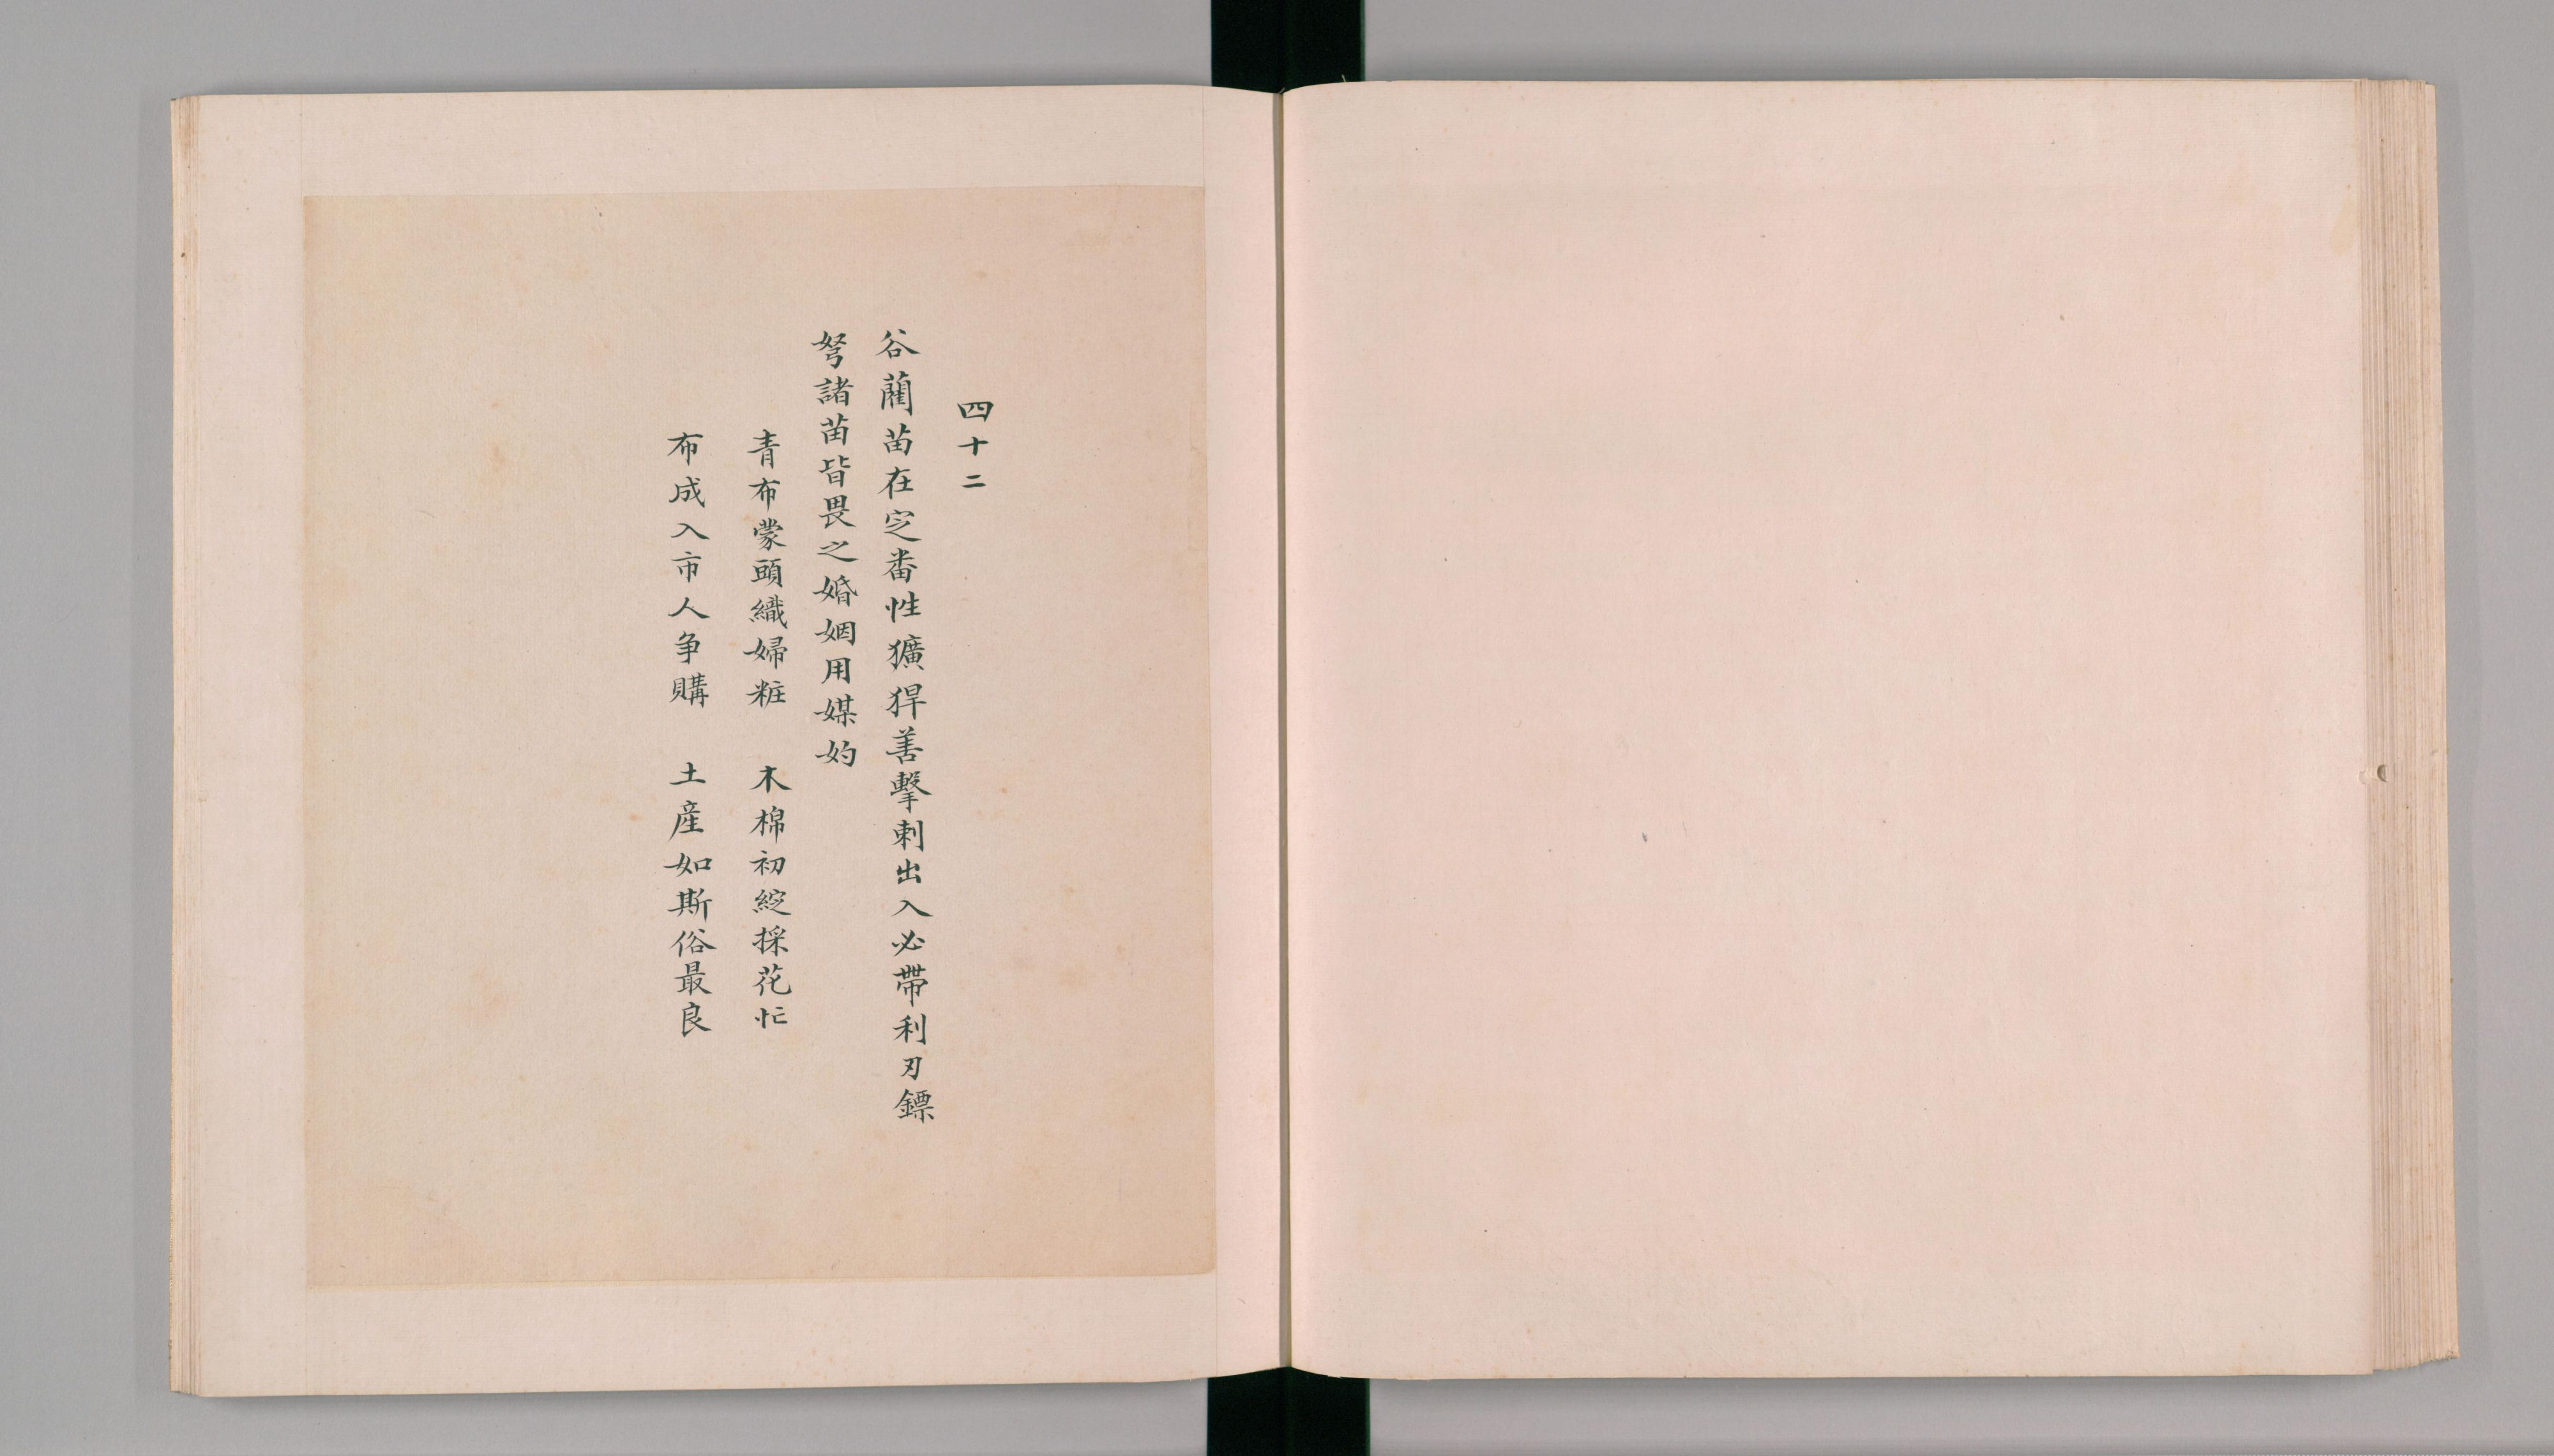 四十二
谷藺苗在定番性獷猂善擊刺出入必帶利刃鏢
弩諸苗皆畏之婚姻用媒妁
青布蒙頭織婦粧　木棉初綻採花忙
布成入市人争購　土産如斯俗最良